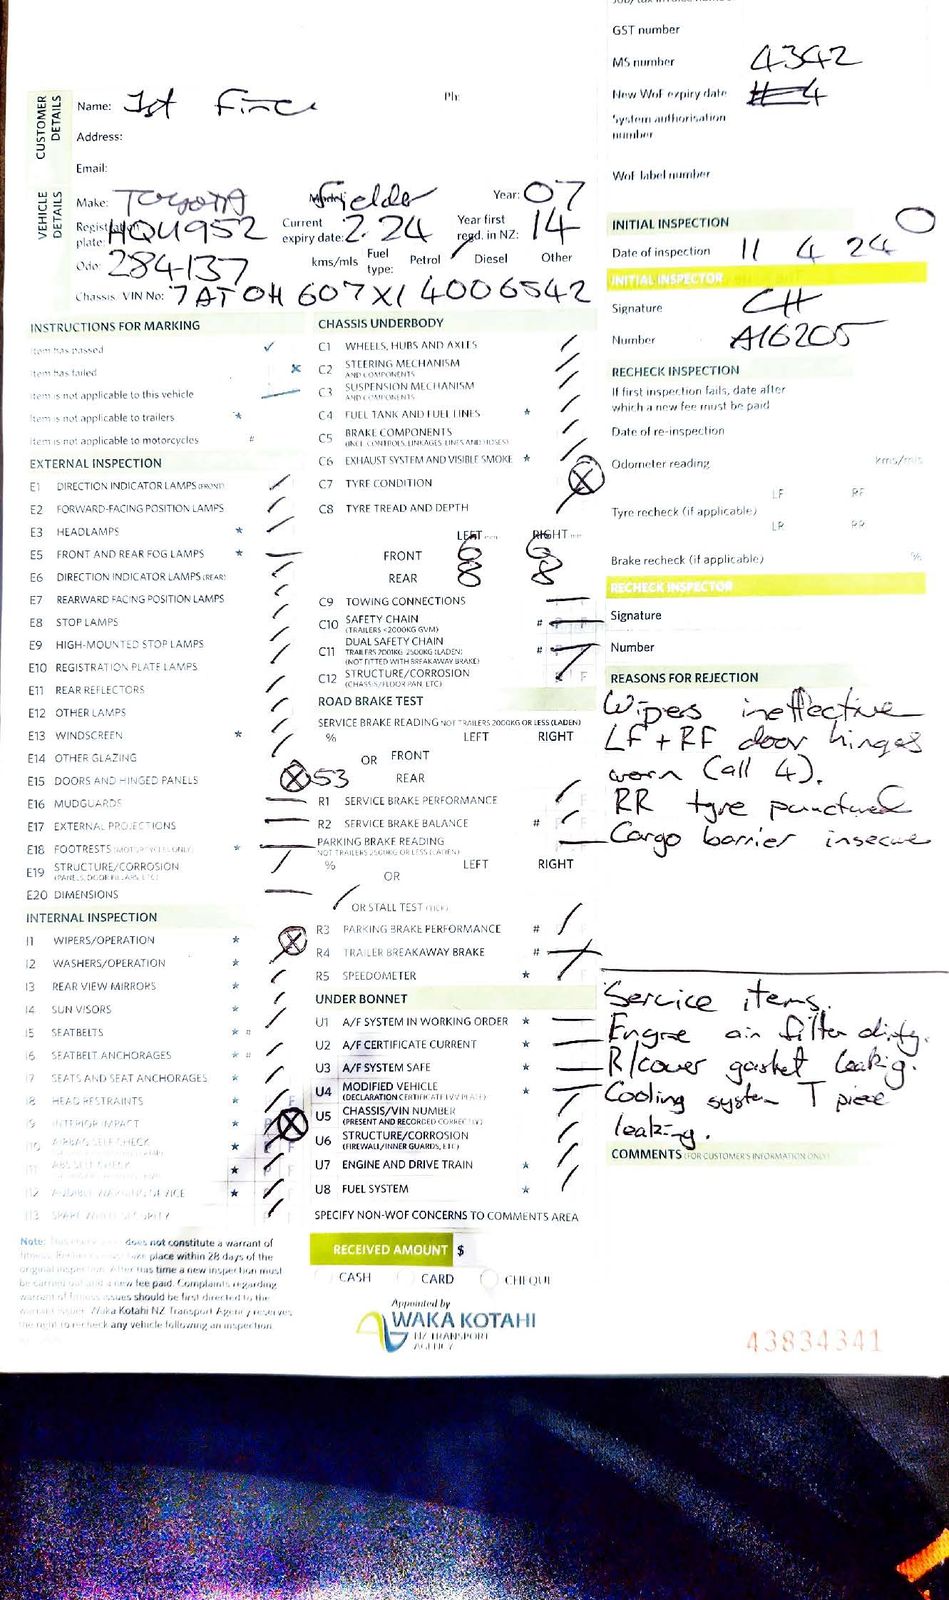 GST number
MS number 4342
New WoF expiry date
System authorisation
number
WoF label number
CUSTOMER
DETAILS
Name: 1st
Ph:
Address:
Email:
VEHICLE
DETAILS
Make: TOYOTA Model: Fielder Year: 07
Registration
plate: HQU952 Current
expiry date: 2.24 Year first
regd. in NZ: 14
Odo: 284137 kms/mls Fuel
type: Petrol Diesel Other
Chassis VIN No: 7AT0H607X14006542
INITIAL INSPECTION
Date of inspection 11 4 24
INITIAL INSPECTOR
Signature CH
Number A16205
RECHECK INSPECTION
If first inspection fails, date after
which a new fee must be paid
Date of re-inspection
Odometer reading kms/mls
LF RF
Tyre recheck (if applicable)
LR RR
Brake recheck (if applicable) %
RECHECK INSPECTOR
Signature
Number
REASONS FOR REJECTION
Wipers ineffective
LF + RF door hinges
worn (all 4).
RR tyre punctured
Cargo barrier insecure
Service items.
Engine air filter dirty.
R/cover gasket leaking.
Cooling system T piece
leaking.
COMMENTS (FOR CUSTOMER'S INFORMATION ONLY)
INSTRUCTIONS FOR MARKING
Item has passed ✓
Item has failed x
Item is not applicable to this vehicle
Item is not applicable to trailers *
Item is not applicable to motorcycles #
EXTERNAL INSPECTION
E1 DIRECTION INDICATOR LAMPS (FRONT)
E2 FORWARD-FACING POSITION LAMPS
E3 HEADLAMPS *
E5 FRONT AND REAR FOG LAMPS *
E6 DIRECTION INDICATOR LAMPS (REAR)
E7 REARWARD FACING POSITION LAMPS
E8 STOP LAMPS
E9 HIGH-MOUNTED STOP LAMPS
E10 REGISTRATION PLATE LAMPS
E11 REAR REFLECTORS
E12 OTHER LAMPS
E13 WINDSCREEN *
E14 OTHER GLAZING
E15 DOORS AND HINGED PANELS
E16 MUDGUARDS
E17 EXTERNAL PROJECTIONS
E18 FOOTRESTS (MOTORCYCLES ONLY) *
E19 STRUCTURE/CORROSION
(PANELS, DOOR PILLARS, ETC)
E20 DIMENSIONS
INTERNAL INSPECTION
I1 WIPERS/OPERATION *
I2 WASHERS/OPERATION *
I3 REAR VIEW MIRRORS *
I4 SUN VISORS *
I5 SEATBELTS * #
I6 SEATBELT ANCHORAGES * #
I7 SEATS AND SEAT ANCHORAGES *
I8 HEAD RESTRAINTS *
I9 INTERIOR IMPACT *
I10 AIRBAG SELF CHECK *
I11 ABS SELF CHECK *
I12 AUDIBLE WARNING DEVICE *
I13 SPARE WHEEL SECURITY
CHASSIS UNDERBODY
C1 WHEELS, HUBS AND AXLES
C2 STEERING MECHANISM
AND COMPONENTS
C3 SUSPENSION MECHANISM
AND COMPONENTS
C4 FUEL TANK AND FUEL LINES *
C5 BRAKE COMPONENTS
(INCL CONTROLS, LINKAGES, LINES AND HOSES)
C6 EXHAUST SYSTEM AND VISIBLE SMOKE *
C7 TYRE CONDITION
C8 TYRE TREAD AND DEPTH
LEFT mm RIGHT mm
FRONT 6 6
REAR 8 8
C9 TOWING CONNECTIONS
C10 SAFETY CHAIN #
(TRAILERS <2000KG GVM)
C11 DUAL SAFETY CHAIN #
TRAILERS 2001KG-2500KG (LADEN)
(NOT FITTED WITH BREAKAWAY BRAKE)
C12 STRUCTURE/CORROSION
(CHASSIS/FLOOR PAN, ETC)
ROAD BRAKE TEST
SERVICE BRAKE READING NOT TRAILERS 2000KG OR LESS (LADEN)
% LEFT RIGHT
OR FRONT
53 REAR
R1 SERVICE BRAKE PERFORMANCE
R2 SERVICE BRAKE BALANCE #
PARKING BRAKE READING
NOT TRAILERS 2500KG OR LESS (LADEN)
% LEFT RIGHT
OR
OR STALL TEST (TICK)
R3 PARKING BRAKE PERFORMANCE #
R4 TRAILER BREAKAWAY BRAKE #
R5 SPEEDOMETER *
UNDER BONNET
U1 A/F SYSTEM IN WORKING ORDER *
U2 A/F CERTIFICATE CURRENT *
U3 A/F SYSTEM SAFE *
U4 MODIFIED VEHICLE *
(DECLARATION CERTIFICATE LVV PLATE)
U5 CHASSIS/VIN NUMBER
(PRESENT AND RECORDED CORRECTLY)
U6 STRUCTURE/CORROSION
(FIREWALL/INNER GUARDS, ETC)
U7 ENGINE AND DRIVE TRAIN *
U8 FUEL SYSTEM *
SPECIFY NON-WOF CONCERNS TO COMMENTS AREA
RECEIVED AMOUNT $
CASH CARD CHEQUE
Note: does not constitute a warrant of
fitness. Rechecks must take place within 28 days of the
original inspection. After this time a new inspection must
be carried out and a new fee paid. Complaints regarding
warrant of fitness issues should be first directed to the
warrant issuer. Waka Kotahi NZ Transport Agency reserves
the right to recheck any vehicle following an inspection.
Appointed by
WAKA KOTAHI
NZ TRANSPORT
AGENCY
43834341